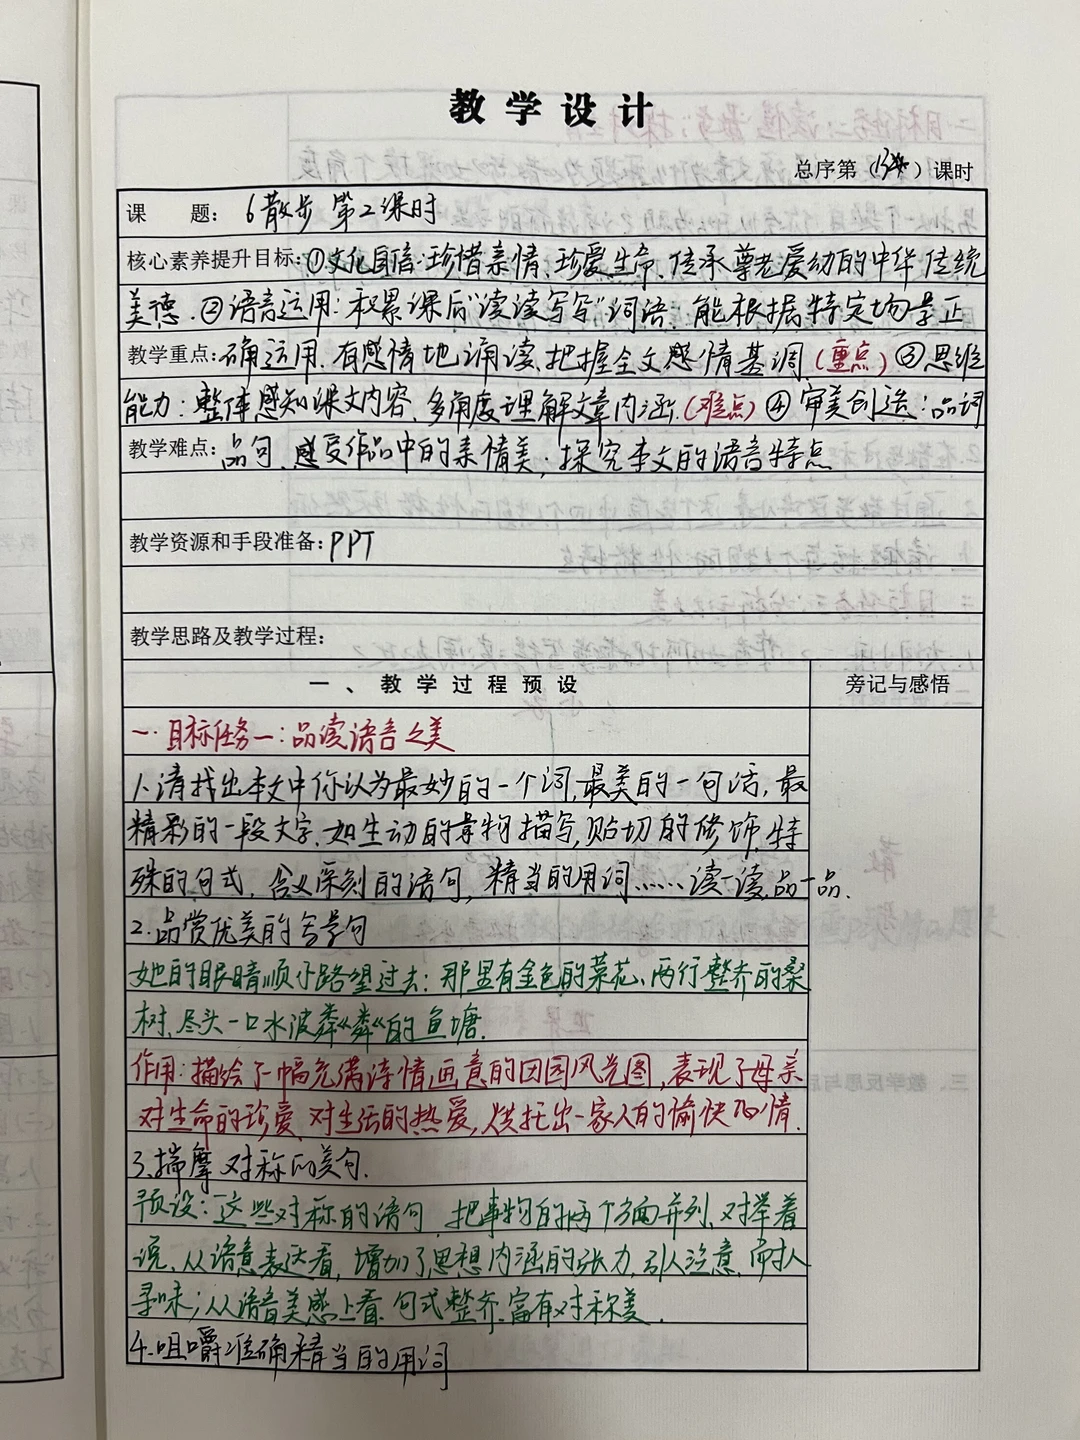 教学设计
总序第（）课时
课 题：6散步 第2课时
核心素养提升目标：①文化自信：珍惜亲情、珍爱生命、传承尊老爱幼的中华传统
美德．②语言运用：积累课后"读读写写"词语；能根据特定场景正
教学重点：确运用．有感情地诵读、把握全文感情基调（重点）③思维
能力：整体感知课文内容、多角度理解文章内涵（难点）④审美创造：品词
教学难点：品句、感受作品中的亲情美；探究本文的语言特点
教学资源和手段准备：PPT
教学思路及教学过程：
一、教学过程预设 旁记与感悟
一．目标任务一：品读语言之美
1、请找出本文中你认为最妙的一个词，最美的一句话，最
精彩的一段文字．如生动的景物描写，贴切的修饰，特
殊的句式，含义深刻的语句，精当的用词……读一读，品一品．
2．品赏优美的写景句
她的眼睛顺小路望过去：那里有金色的菜花、两行整齐的桑
树、尽头一口水波粼粼的鱼塘．
作用：描绘了一幅充满诗情画意的田园风光图，表现了母亲
对生命的珍爱、对生活的热爱，烘托出一家人的愉快心情．
3、揣摩对称的美句．
预设：这些对称的语句，把事物的两个方面并列、对举着
说，从语意表达看，增加了思想内涵的张力，引人注意，耐人
寻味；从语言美感上看，句式整齐，富有对称美．
4．咀嚼准确精当的用词